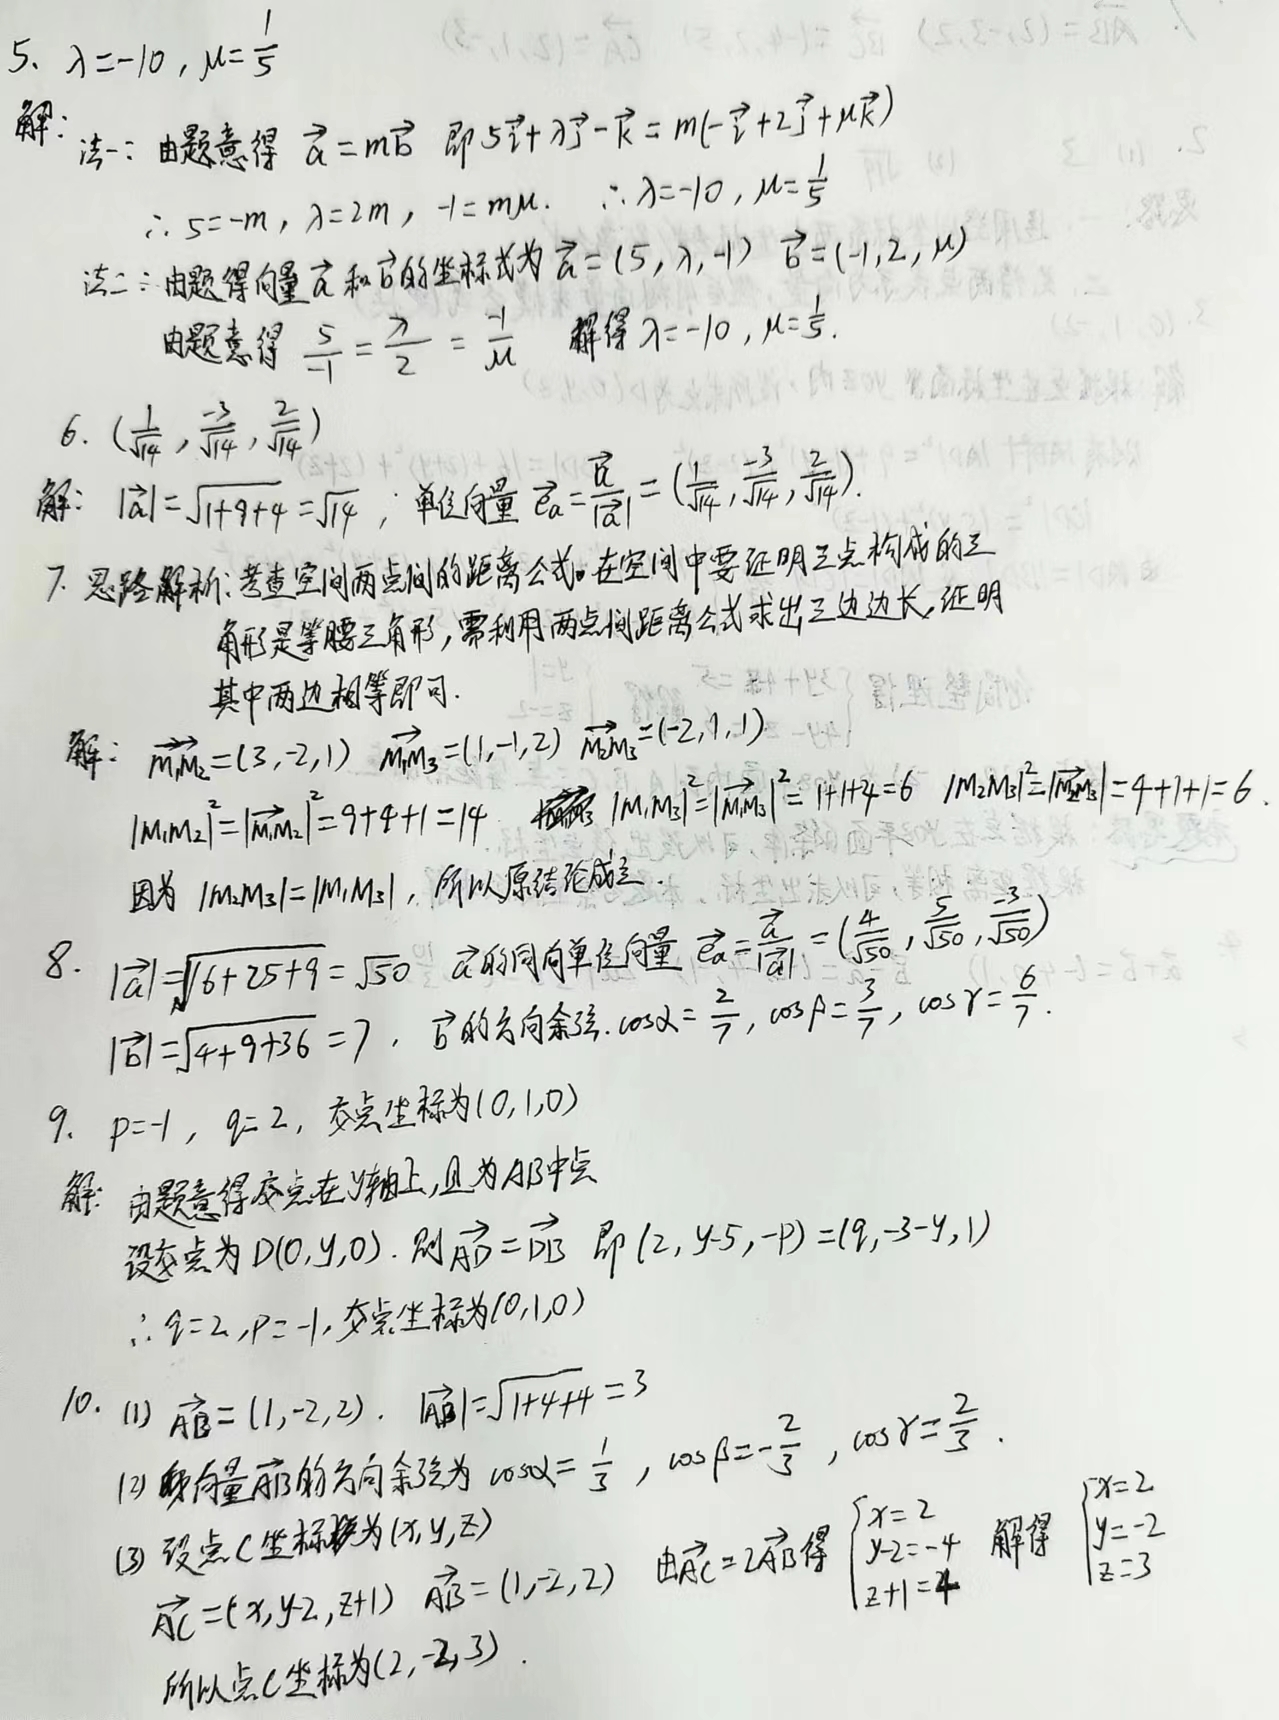 5. λ=-10, μ=1/5
解: 法一: 由题意得 a⃗=mb⃗ 即 5i⃗+λj⃗-k⃗=m(-i⃗+2j⃗+μk⃗)
∴ 5=-m, λ=2m, -1=mμ. ∴ λ=-10, μ=1/5
法二: 由题得向量a⃗和b⃗的坐标式为 a⃗=(5,λ,-1) b⃗=(-1,2,μ)
由题意得 5/-1=λ/2=-1/μ 解得λ=-10, μ=1/5.
6. (1/√14, -3/√14, 2/√14)
解: |a⃗|=√(1+9+4)=√14, 单位向量 e⃗a=a⃗/|a⃗|=(1/√14, -3/√14, 2/√14).
7. 思路解析: 考查空间两点间的距离公式。在空间中要证明三点构成的三
角形是等腰三角形, 需利用两点间距离公式求出三边边长, 证明
其中两边相等即可.
解: M₁M₂⃗=(3,-2,1) M₁M₃⃗=(1,-1,2) M₂M₃⃗=(-2,1,1)
|M₁M₂|²=|M₁M₂⃗|²=9+4+1=14 |M₁M₃|²=|M₁M₃⃗|²=1+1+4=6 |M₂M₃|²=|M₂M₃⃗|=4+1+1=6.
因为 |M₂M₃|=|M₁M₃|, 所以原结论成立.
8. |a⃗|=√(16+25+9)=√50 a⃗的同向单位向量 e⃗a=a⃗/|a⃗|=(4/√50, 5/√50, -3/√50)
|b⃗|=√(4+9+36)=7, b⃗的方向余弦. cosα=2/7, cosβ=3/7, cosγ=6/7.
9. p=-1, q=2, 交点坐标为(0,1,0)
解: 由题意得交点在y轴上, 且为AB中点
设交点为D(0,y,0). 则AD⃗=DB⃗ 即(2,y-5,-p)=(q,-3-y,1)
∴ q=2, p=-1, 交点坐标为(0,1,0)
10. (1) AB⃗=(1,-2,2). |AB⃗|=√(1+4+4)=3
(2) 向量AB⃗的方向余弦为 cosα=1/3, cosβ=-2/3, cosγ=2/3.
(3) 设点C坐标为(x,y,z)
AC⃗=(x,y-2,z+1) AB⃗=(1,-2,2) 由AC⃗=2AB⃗得 {x=2 y-2=-4 z+1=4 解得 {x=2 y=-2 z=3
所以点C坐标为(2,-2,3).